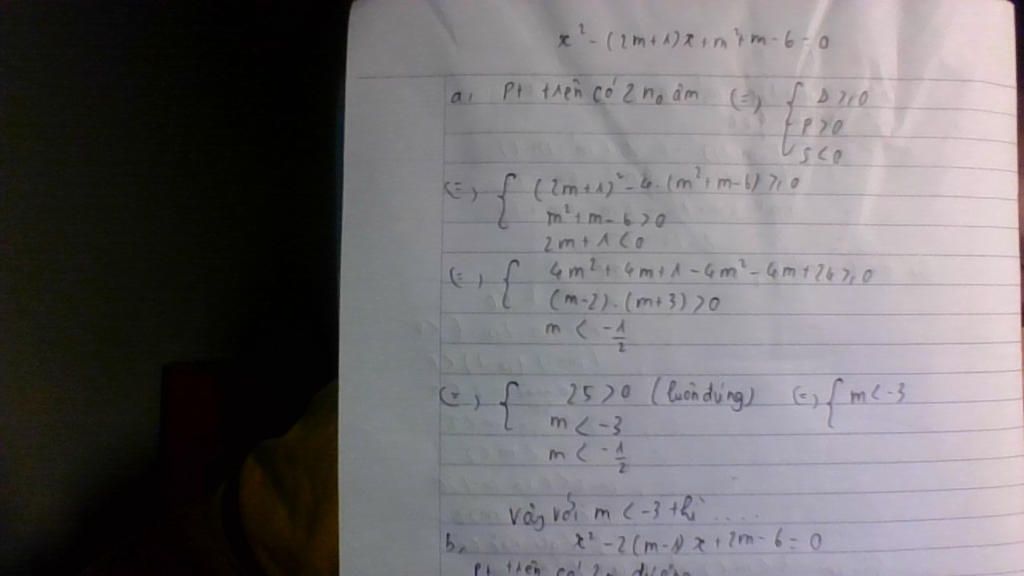 x² - (2m+1)x + m² + m - 6 = 0
a, Pt trên có 2 n₀ âm (=) { Δ ≥ 0
P > 0
S < 0
(=) { (2m+1)² - 4.(m² + m - 6) ≥ 0
m² + m - 6 > 0
2m + 1 < 0
(=) { 4m² + 4m + 1 - 4m² - 4m + 24 ≥ 0
(m-2).(m+3) > 0
m < -1/2
(=) { 25 > 0 (luôn đúng) (=) { m < -3
m < -3
m < -1/2
Vậy với m < -3 thì ....
b, x² - 2(m-1)x + 2m - 6 = 0
Pt trên có 2